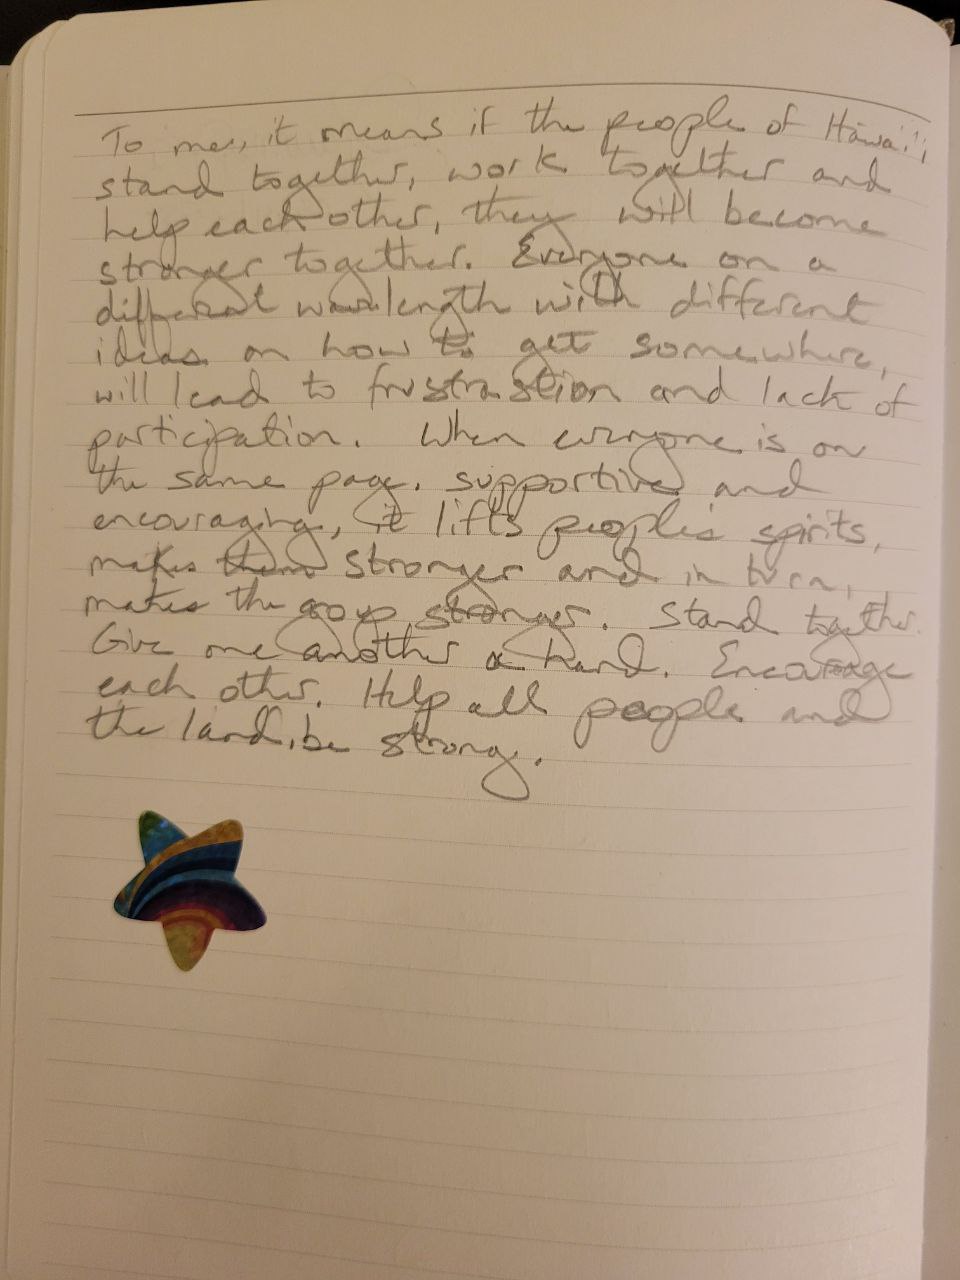 To me, it means if the people of Hawai'i,
stand together, work together and
help each other, they will become
stronger together. Everyone on a
different wavelength with different
ideas on how to get somewhere,
will lead to frustration and lack of
participation. When everyone is on
the same page, supportive and
encouraging, it lifts people's spirits,
makes them stronger and in turn,
makes the group stronger. Stand together.
Give one another a hand. Encourage
each other. Help all people and
the land, be strong.